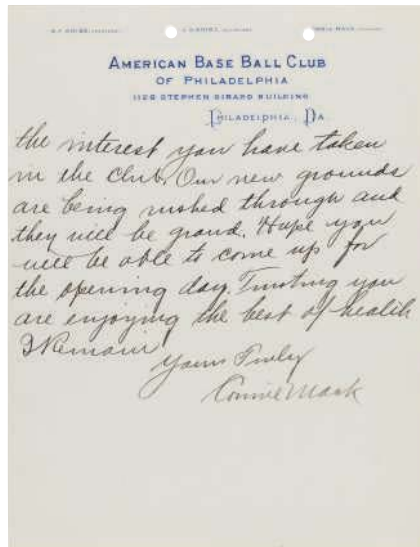 AMERICAN BASE BALL CLUB
OF PHILADELPHIA
1126 STEPHEN GIRARD BUILDING
PHILADELPHIA, PA.
the interest you have taken
in the Club. Our new grounds
are being rushed through and
they will be grand. Hope you
will be able to come up for
the opening day. Trusting you
are enjoying the best of health
I Remain
Yours Truly
Connie Mack